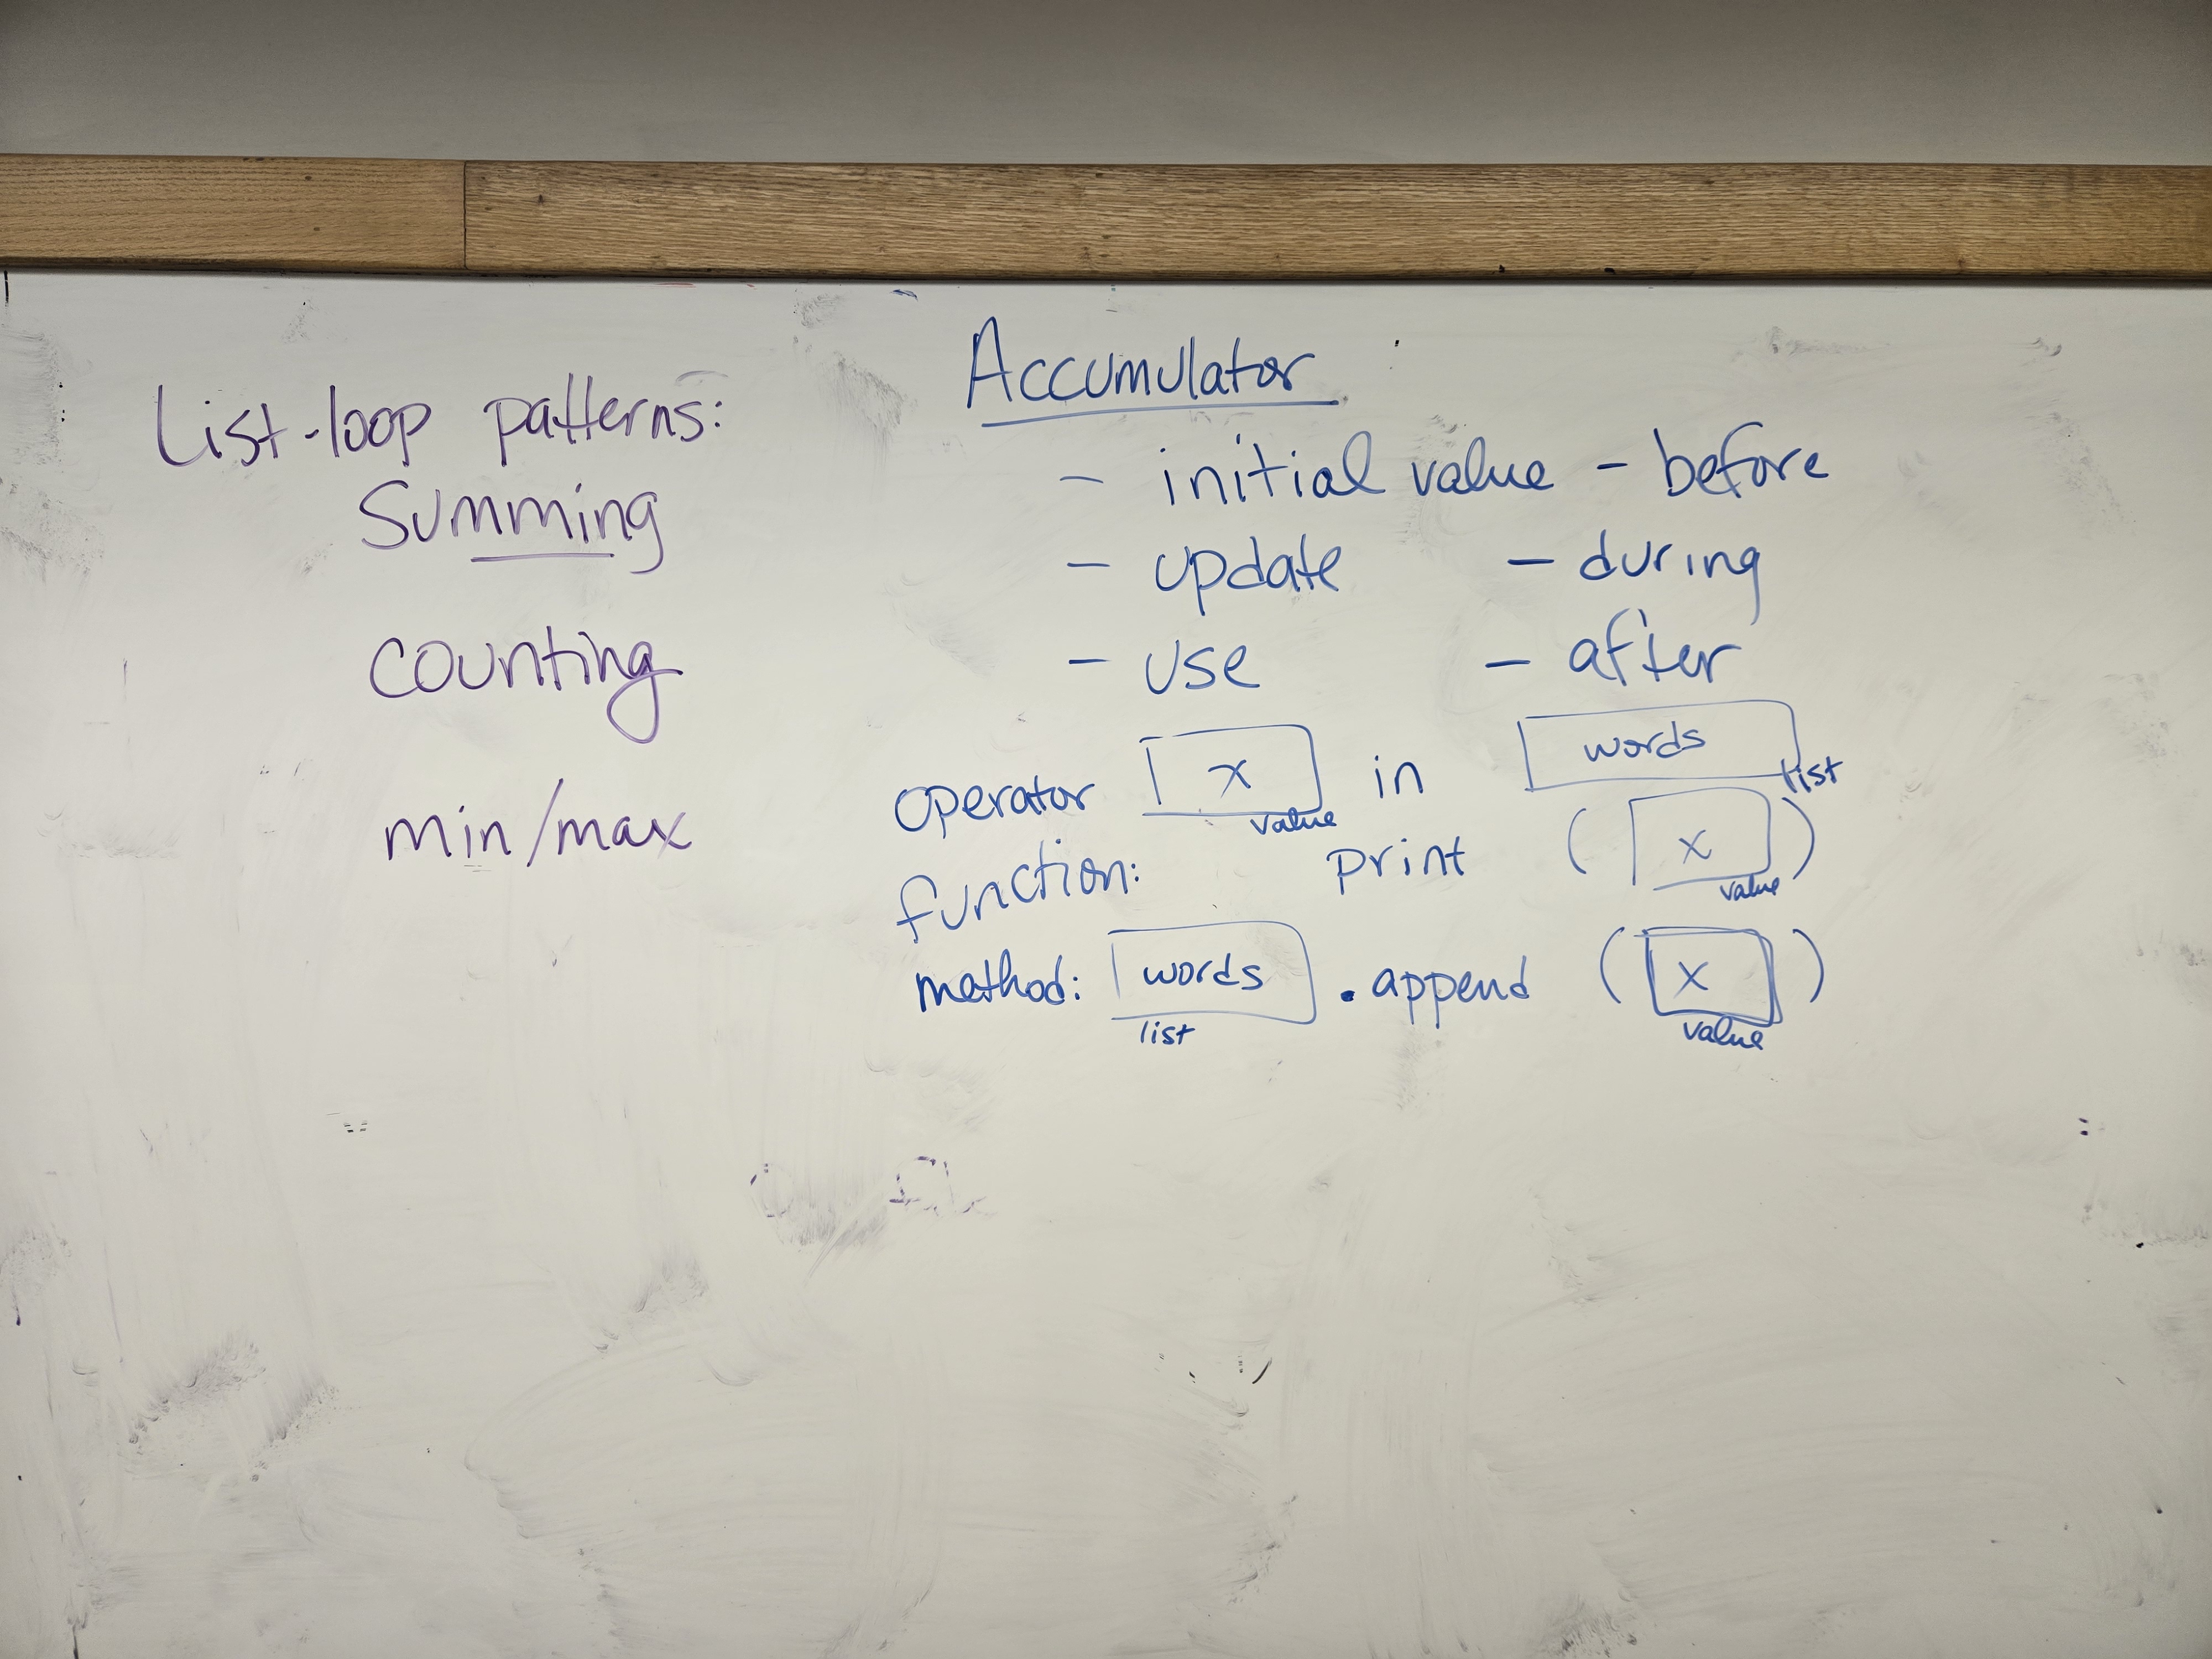 List-loop patterns:
Summing
counting
min/max
Accumulator
- initial value - before
- update - during
- use - after
operator x in words
value list
function: print ( x )
value
method: words .append ( x )
list value